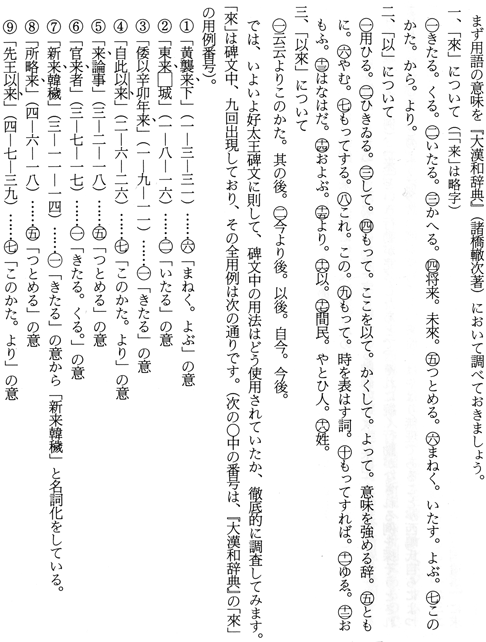 まず用語の意味を『大漢和辞典』(諸橋轍次著)において調べておきましょう。
一、「來」について(「来」は略字)
㊀きたる。くる。㊁いたる。㊂かへる。㊃将来。未來。㊄つとめる。㊅まねく。いたす。よぶ。㊆この
かた。から。より。
二、「以」について
㊀用ひる。㊁ひきゐる。㊂して。㊃もって。ここを以て。かくして。よって。意味を強める辞。㊄とも
に。㊅やむ。㊆もってする。㊇これ。この。㊈もって。時を表はす詞。㊉もってすれば。㊉㊀ゆゑ。㊉㊁お
もふ。㊉㊂はなはだ。㊉㊃およぶ。㊉㊄より。㊉㊅以。㊉㊆間民。やとひ人。㊉㊇姓。
三、「以來」について
㊀云云よりこのかた。其の後。㊁今より後。以後。自今。今後。
では、いよいよ好太王碑文に則して、碑文中の用法はどう使用されていたか、徹底的に調査してみます。
「來」は碑文中、九回出現しており、その全用例は次の通りです。(次の〇中の番号は、『大漢和辞典』の「來」
の用例番号)。
①「黄襲来下」(一―三―三一)……㊅「まねく。よぶ」の意
②「東来□城」(一―八―一六)……㊁「いたる」の意
③「倭以辛卯年来」(一―九―一一)……㊀「きたる」の意
④「自此以来」(二―六―二六)……㊆「このかた。より」の意
⑤「来論事」(三―二―一八)……㊄「つとめる」の意
⑥「官来者」(三―七―七)……㊀「きたる。くる。」の意
⑦「新来韓穢」(三―一一―一四)……㊀「きたる」の意から「新来韓穢」と名詞化をしている。
⑧「所略来」(四―六―一八)……㊄「つとめる」の意
⑨「先王以来」(四―七―三九)……㊆「このかた。より」の意